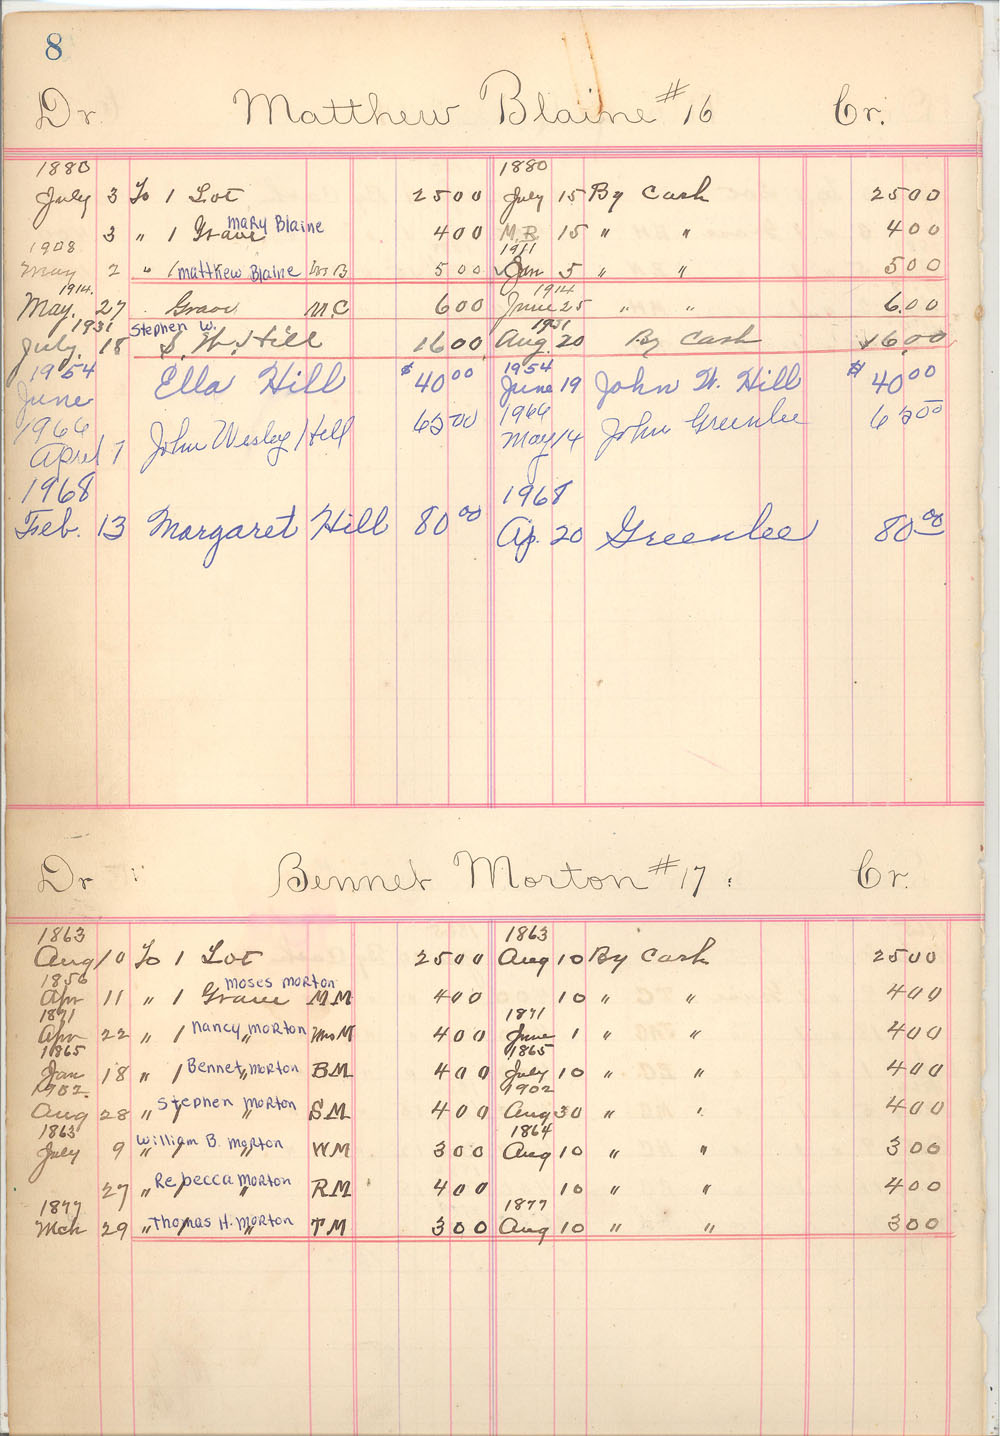 8
Dr. Matthew Blaine #16 Cr.
1880 1880
July 3 To 1 Lot 25 00 July 15 By Cash 25 00
3 " 1 Grave Mary Blaine 4 00 M.R. 15 " " 4 00
1908 1911
May 2 " 1 Matthew Blaine 5 00 Jan 5 " " 5 00
1914. 1914
May. 27 Grave M.C 6 00 June 25 " " 6.00
1931 Stephen W. 1931
July. 18 S. W. Hill 16 00 Aug. 20 By Cash 16.00
1954 1954
June Ella Hill $40 00 June 19 John W. Hill $40 00
1966 1966
April 7 John Wesley Hill 65 00 May 14 John Greenlee 65 00
1968 1968
Feb. 13 Margaret Hill 80 00 Ap. 20 Greenlee 80 00
Dr Bennet Morton #17. Cr.
1863 1863
Aug 10 To 1 Lot 25 00 Aug 10 By Cash 25 00
1856 Moses Morton
Apr 11 " 1 Grave M M 4 00 10 " " 4 00
1871 1871
Apr 22 " 1 Nancy Morton " Mrs M 4 00 June 1 " " 4 00
1865 1865
Jan 18 " 1 Bennet Morton " B M 4 00 July 10 " " 4 00
1902. 1902
Aug 28 " Stephen Morton " S M 4 00 Aug 30 " " 4 00
1863 1864
July 9 " William B. Morton " W M 3 00 Aug 10 " " 3 00
27 " Rebecca Morton " R M 4 00 10 " " 4 00
1877 1877
Mch 29 " Thomas H. Morton " T M 3 00 Aug 10 " " 3 00